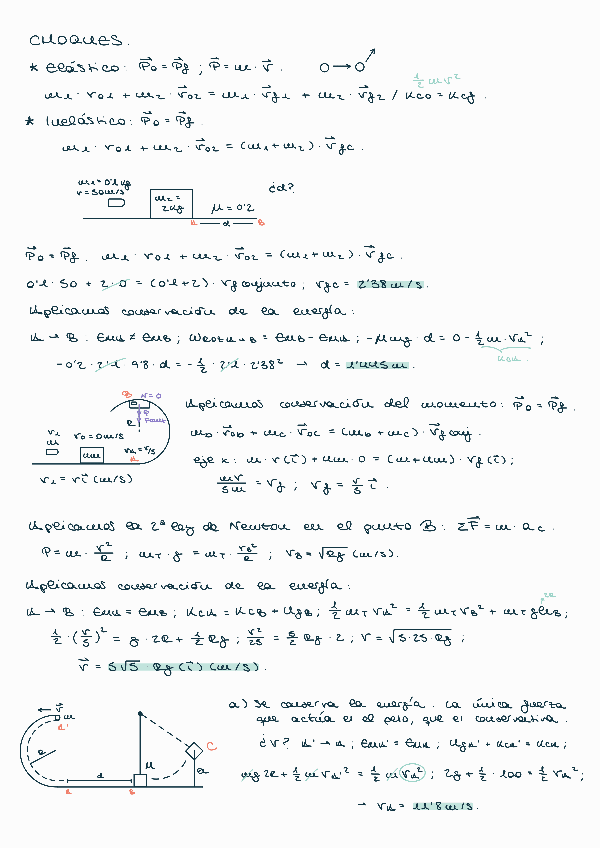 CHOQUES.
* Elástico: P⃗o = P⃗f ; P⃗ = m · v⃗.
½ mv²
m1 · v01 + m2 · v⃗02 = m1 · v⃗f1 + m2 · v⃗f2 / Kco = Kcf.
* Inelástico: P⃗o = P⃗f.
m1 · v01 + m2 · v⃗02 = (m1+m2) · v⃗fc.
m1 = 0'1 kg
v = 50 m/s
m2 = 2kg
μ = 0'2
¿d?
A d B
P⃗o = P⃗f. m1 · v01 + m2 · v⃗02 = (m1+m2) · v⃗fc.
0'1 · 50 + 2 · 0 = (0'1+2) · vf conjunto ; vfc = 2'38 m/s.
Aplicamos conservación de la energía:
A → B. EmA ≠ EmB ; WFOT A→B = EmB - EmA ; -μmg · d = 0 - ½ m · vA² ;
KcA.
-0'2 · 2'1 · 9'8 · d = -½ · 2'1 · 2'38² → d = 1'445m.
B N=0
P
R
A
v1
m
v0 = 0 m/s
4m
vA = v/5
v1 = v i⃗ (m/s)
Aplicamos conservación del momento: P⃗o = P⃗f.
mb · v⃗0b + mc · v⃗0c = (mb+mc) · v⃗f conj.
eje x: m · v (i⃗) + 4m · 0 = (m+4m) · vf (i⃗) ;
mv/5m = vf ; vf = v/5 i⃗.
Aplicamos la 2ª ley de Newton en el punto B: ΣF⃗ = m · ac.
P = m · v²/R ; mT · g = mT · vB²/R ; vB = √Rg (m/s).
Aplicamos conservación de la energía:
2R
A → B : EmA = EmB ; KcA = KcB + UgB ; ½ mT vA² = ½ mT vB² + mT g hB ;
½ · (v/5)² = g · 2R + ½ Rg ; v²/25 = 5/2 Rg · 2 ; v = √5·25·Rg ;
v⃗ = 5√5 Rg (i⃗) (m/s).
v⃗
m
A'
R
d
A B
M
C
a) Se conserva la energía. La única fuerza
que actúa es el peso, que es conservativa.
¿v? A' → A ; EmA' = EmA ; UgA' + KcA' = KcA ;
mg 2R + ½ m vA'² = ½ m vA² ; 2g + ½ · 100 = ½ vA² ;
→ vA = 11'8 m/s.